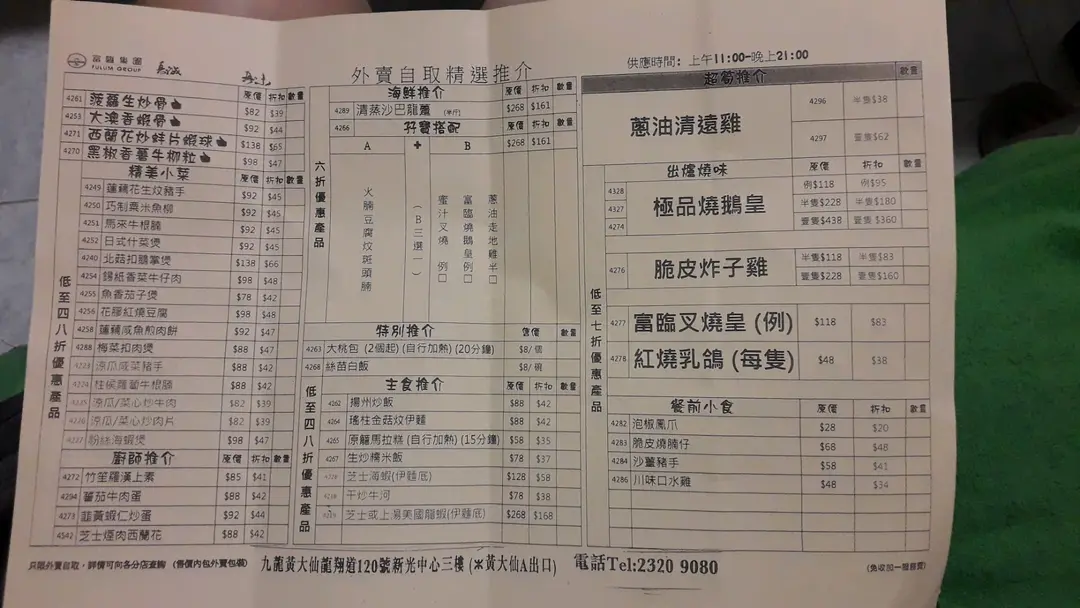 富臨集團
FULUM GROUP
外賣自取精選推介
供應時間: 上午11:00-晚上21:00
原價 折扣 數量
4261 菠蘿生炒骨 $82 $39
4253 大澳香蝦骨 $92 $44
4271 西蘭花炒蚌片蝦球 $138 $65
4270 黑椒香薯牛柳粒 $98 $47
低至四八折優惠產品
精美小菜 原價 折扣 數量
4249 蓮藕花生炆豬手 $92 $45
4250 巧制粟米魚柳 $92 $45
4251 馬來牛根腩 $92 $45
4252 日式什菜煲 $92 $45
4240 北菇扣鵝掌煲 $138 $66
4254 錫紙香菜牛仔肉 $98 $48
4255 魚香茄子煲 $78 $42
4256 花膠紅燒豆腐 $98 $48
4258 蓮藕咸魚煎肉餅 $92 $47
4288 梅菜扣肉煲 $88 $47
涼瓜咸菜豬手 $88 $42
柱侯蘿蔔牛根腩 $88 $42
涼瓜/菜心炒牛肉 $82 $39
涼瓜/菜心炒肉片 $82 $39
粉絲海蝦煲 $98 $47
廚師推介 原價 折扣 數量
4272 竹笙羅漢上素 $85 $41
4294 蕃茄牛肉蛋 $88 $42
4273 韮黃蝦仁炒蛋 $92 $44
4542 芝士煙肉西蘭花 $88 $42
六折優惠產品
海鮮推介 原價 折扣 數量
4289 清蒸沙巴龍躉 (半斤) $268 $161
4266 孖寶搭配 $268 $161
A + B
火腩豆腐炆斑頭腩
(B三選一)
蜜汁叉燒 例□
富臨燒鵝皇例□
蔥油走地雞半□
特別推介 售價 數量
4263 大桃包 (2個起) (自行加熱) (20分鐘) $8/個
4268 絲苗白飯 $8/碗
低至四八折優惠產品
主食推介 原價 折扣 數量
4262 揚州炒飯 $88 $42
4264 瑤柱金菇炆伊麵 $88 $42
4265 原籠馬拉糕 (自行加熱) (15分鐘) $58 $35
4267 生炒糯米飯 $78 $37
芝士海蝦(伊麵底) $128 $58
干炒牛河 $78 $38
芝士或上湯美國龍蝦(伊麵底) $268 $168
超筍推介 數量
蔥油清遠雞
4296 半隻$38
4297 壹隻$62
低至七折優惠產品
出爐燒味 原價 折扣 數量
極品燒鵝皇
4328 例$118 例$95
4327 半隻$228 半隻$180
4274 壹隻$438 壹隻$360
4276 脆皮炸子雞
半隻$118 半隻$83
壹隻$228 壹隻$160
4277 富臨叉燒皇 (例) $118 $83
4278 紅燒乳鴿 (每隻) $48 $38
餐前小食 原價 折扣 數量
4282 泡椒鳳爪 $28 $20
4283 脆皮燒腩仔 $68 $48
4284 沙薑豬手 $58 $41
4286 川味口水雞 $48 $34
只限外賣自取，詳情可向各分店查詢 (售價內包外賣包裝)
九龍黃大仙龍翔道120號新光中心三樓 (黃大仙A出口)
電話Tel:2320 9080
(免收加一服務費)